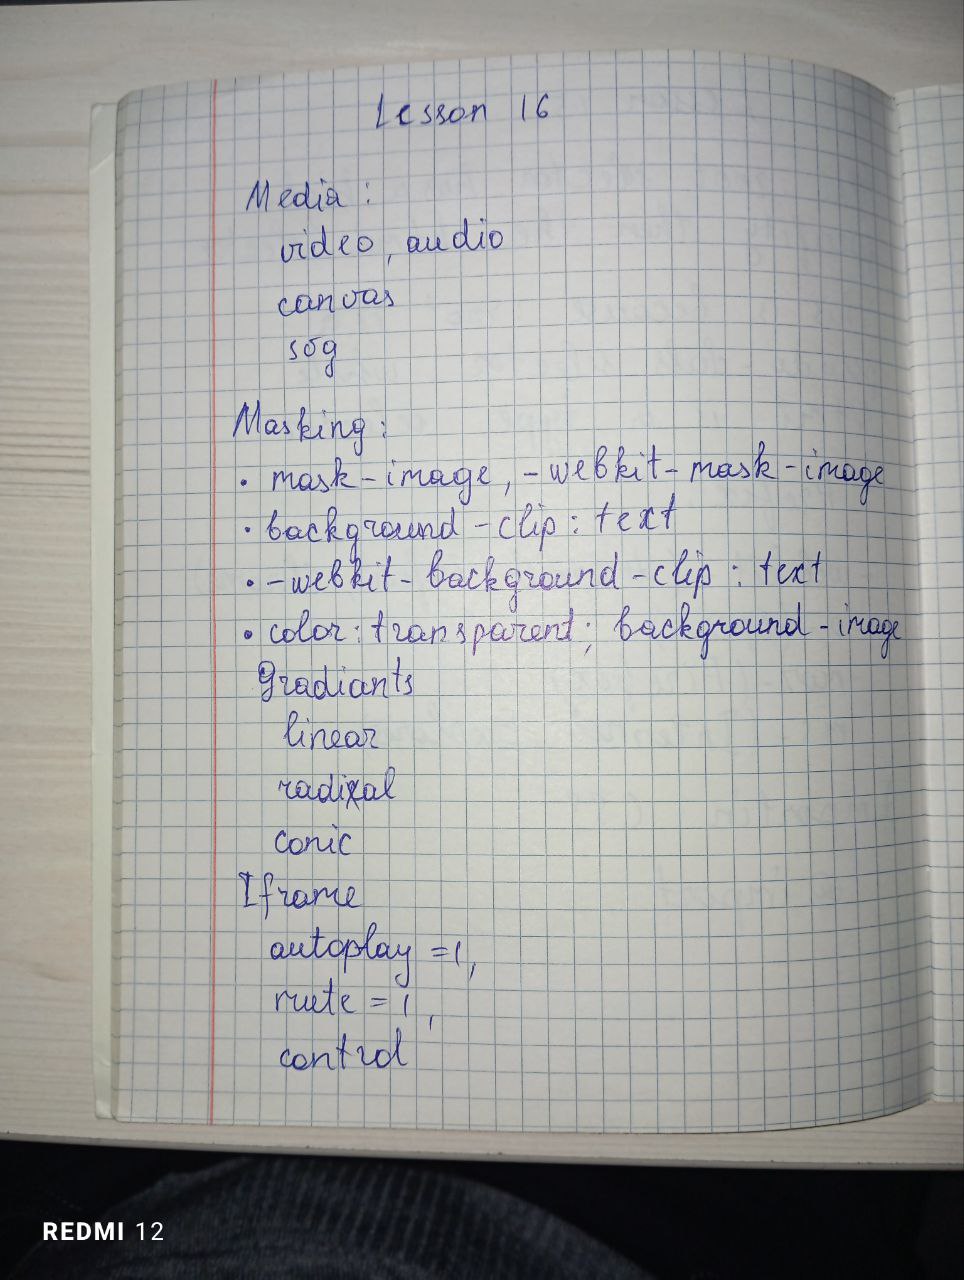 Lesson 16
Media:
video, audio
canvas
svg
Masking:
• mask-image, -webkit-mask-image
• background-clip: text
• -webkit-background-clip: text
• color: transparent; background-image
Gradiants
linear
radial
conic
Iframe
autoplay=1,
mute=1,
control
REDMI 12